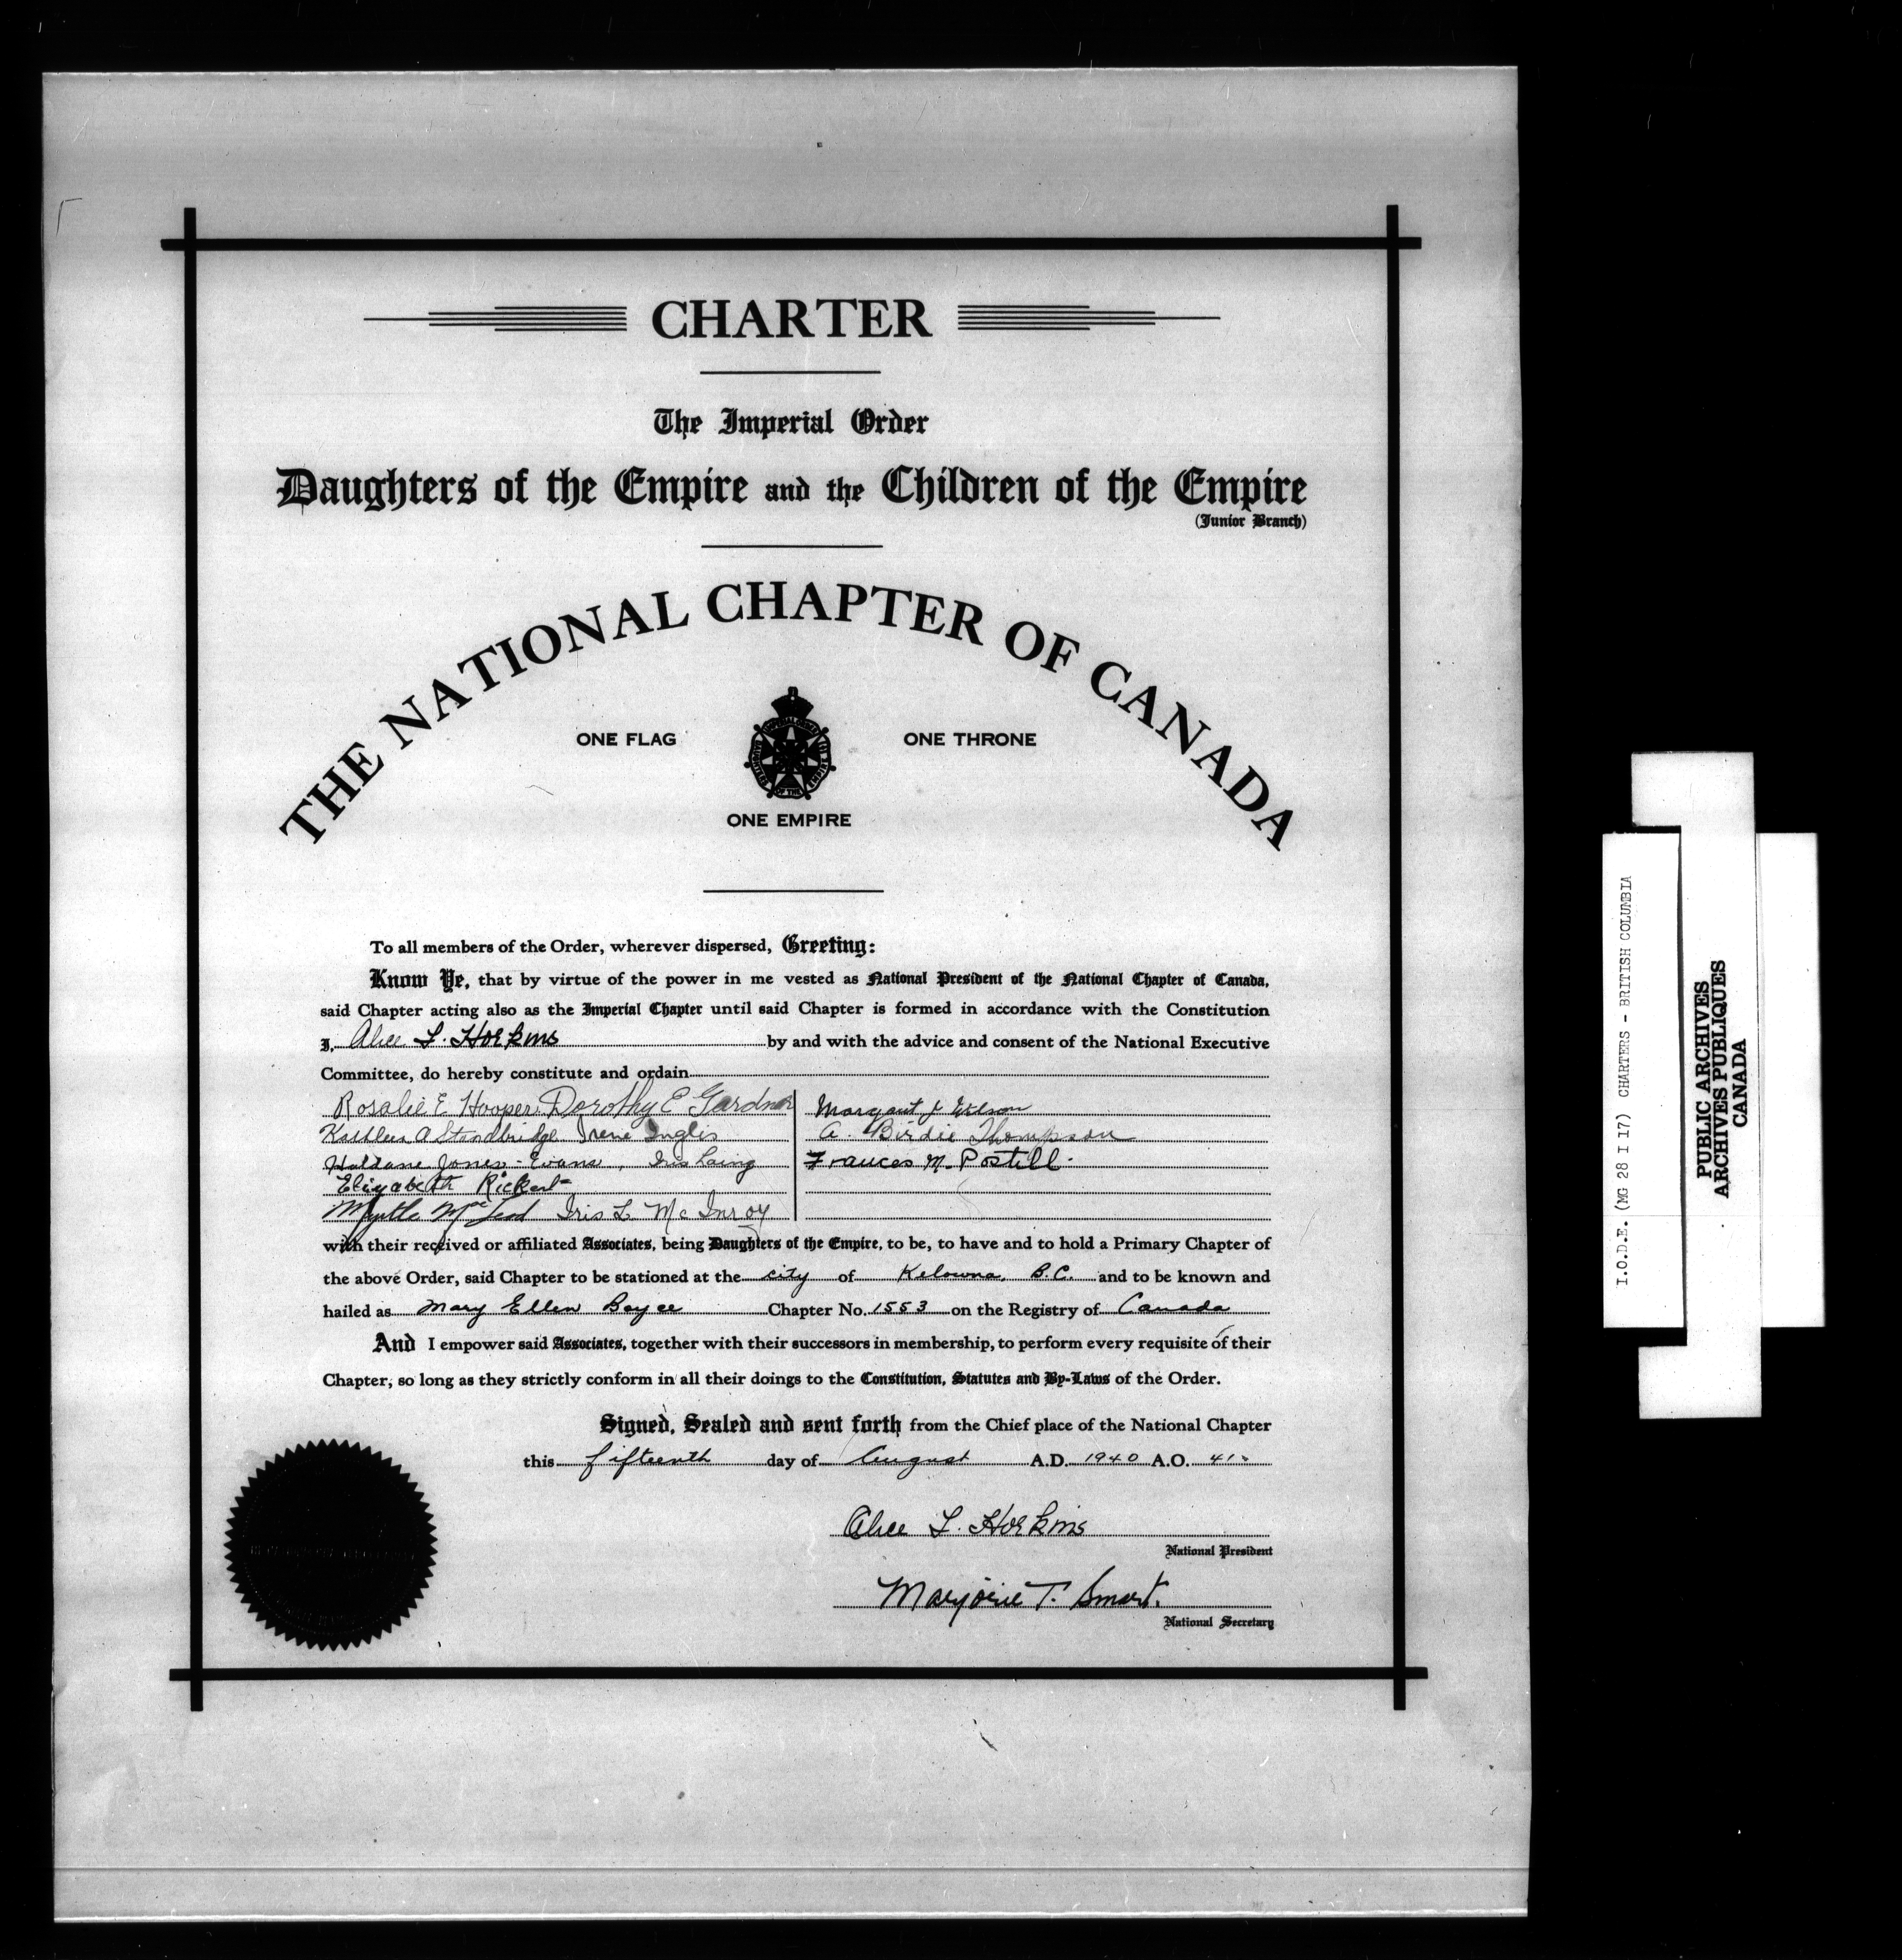 CHARTER
The Imperial Order
Daughters of the Empire and the Children of the Empire
(Junior Branch)
THE NATIONAL CHAPTER OF CANADA
ONE FLAG ONE THRONE
IMPERIAL ORDER DAUGHTERS OF THE EMPIRE
ONE EMPIRE
To all members of the Order, wherever dispersed, Greeting:
Know Ye, that by virtue of the power in me vested as National President of the National Chapter of Canada,
said Chapter acting also as the Imperial Chapter until said Chapter is formed in accordance with the Constitution
I, Alice L. Horkins by and with the advice and consent of the National Executive
Committee, do hereby constitute and ordain
Rosalie E Hooper. Dorothy E Gardner Margaret J Wilson
Kathleen A Standbridge Irene Inglis A. Birdie Thompson
Haldane Jones-Evans, Iris Laing Frances M. Postill.
Elizabeth Rickert
Myrtle MacLeod Iris L. McInroy
with their received or affiliated Associates, being Daughters of the Empire, to be, to have and to hold a Primary Chapter of
the above Order, said Chapter to be stationed at the city of Kelowna, B.C. and to be known and
hailed as Mary Ellen Boyce Chapter No. 1553 on the Registry of Canada
And I empower said Associates, together with their successors in membership, to perform every requisite of their
Chapter, so long as they strictly conform in all their doings to the Constitution, Statutes and By-Laws of the Order.
Signed, Sealed and sent forth from the Chief place of the National Chapter
this fifteenth day of August A.D. 1940 A.O. 41
Alice L. Horkins
National President
Marjorie T. Smart.
National Secretary
I.O.D.E. (MG 28 I 17) CHARTERS - BRITISH COLUMBIA
PUBLIC ARCHIVES
ARCHIVES PUBLIQUES
CANADA